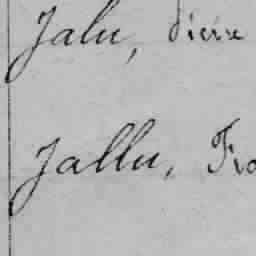 Jalu, Pierre
Jallu, Fra